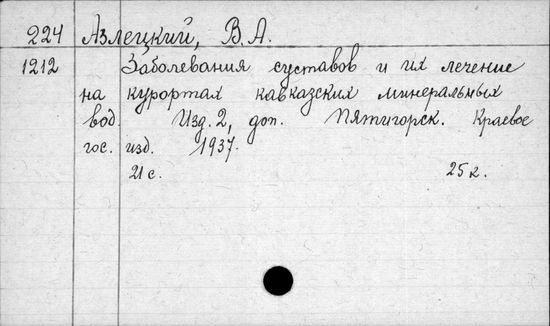 224 Азлецкий, В.А.
1212 Заболевания суставов и их лечение
на курортах кавказских минеральных
вод. Изд. 2, доп. Пятигорск. Краевое
гос. изд. 1937.
21 с. 25 к.